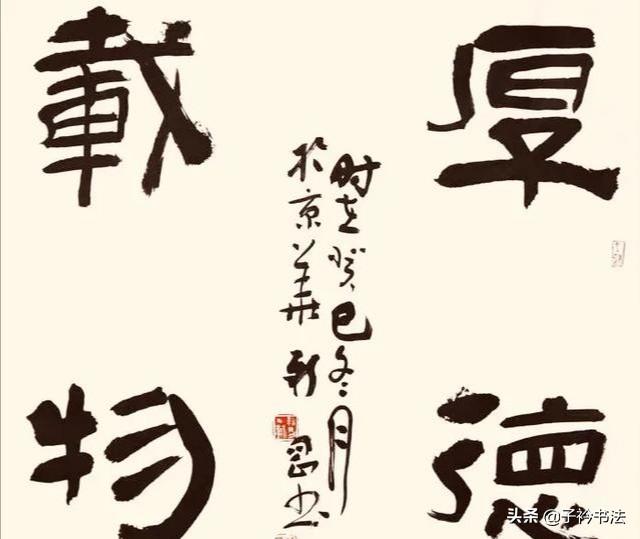 厚德
载物
时在癸巳冬月
於京華书
头条 @子衿书法